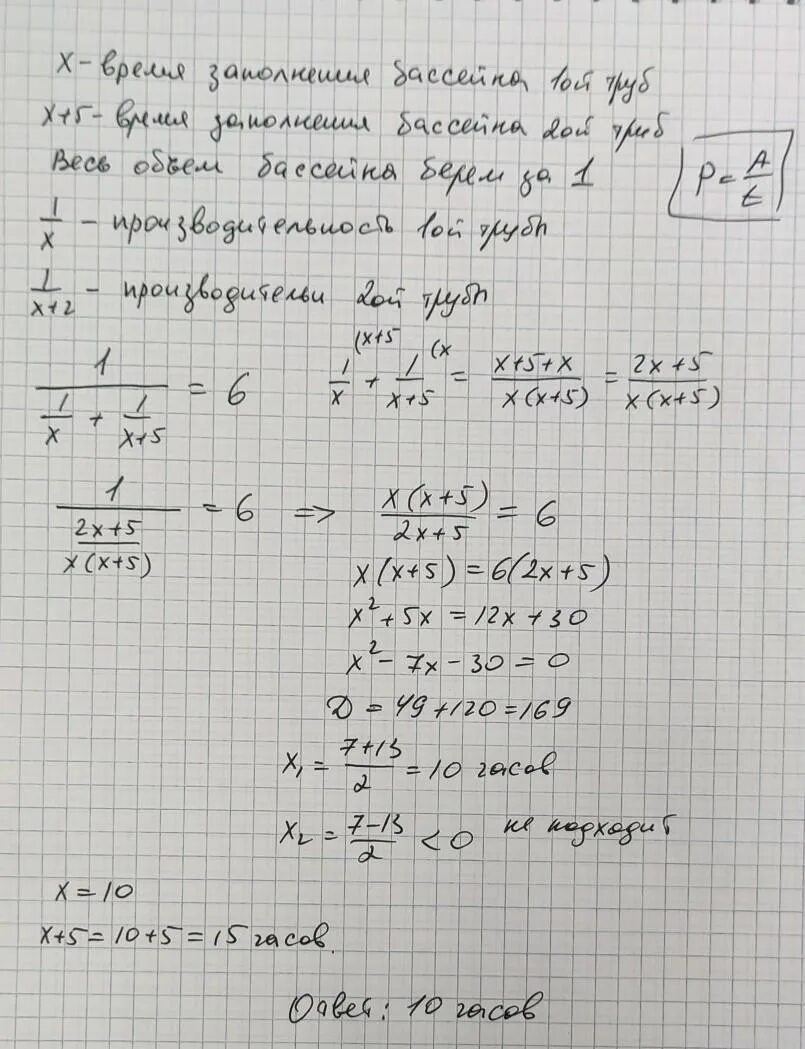 x - время заполнения бассейна 1ой труб
x+5 - время заполнения бассейна 2ой труб
Весь объем бассейна берем за 1
P = A/t
1/x - производительность 1ой трубы
1/(x+2) - производительн 2ой трубы
1/(1/x + 1/(x+5)) = 6
(x+5 (x
1/x + 1/(x+5) = (x+5+x)/(x(x+5)) = (2x+5)/(x(x+5))
1/((2x+5)/(x(x+5))) = 6 => x(x+5)/(2x+5) = 6
x(x+5) = 6(2x+5)
x² + 5x = 12x + 30
x² - 7x - 30 = 0
D = 49 + 120 = 169
x₁ = (7+13)/2 = 10 часов
x₂ = (7-13)/2 < 0 не подходит
x = 10
x+5 = 10+5 = 15 часов.
Ответ: 10 часов